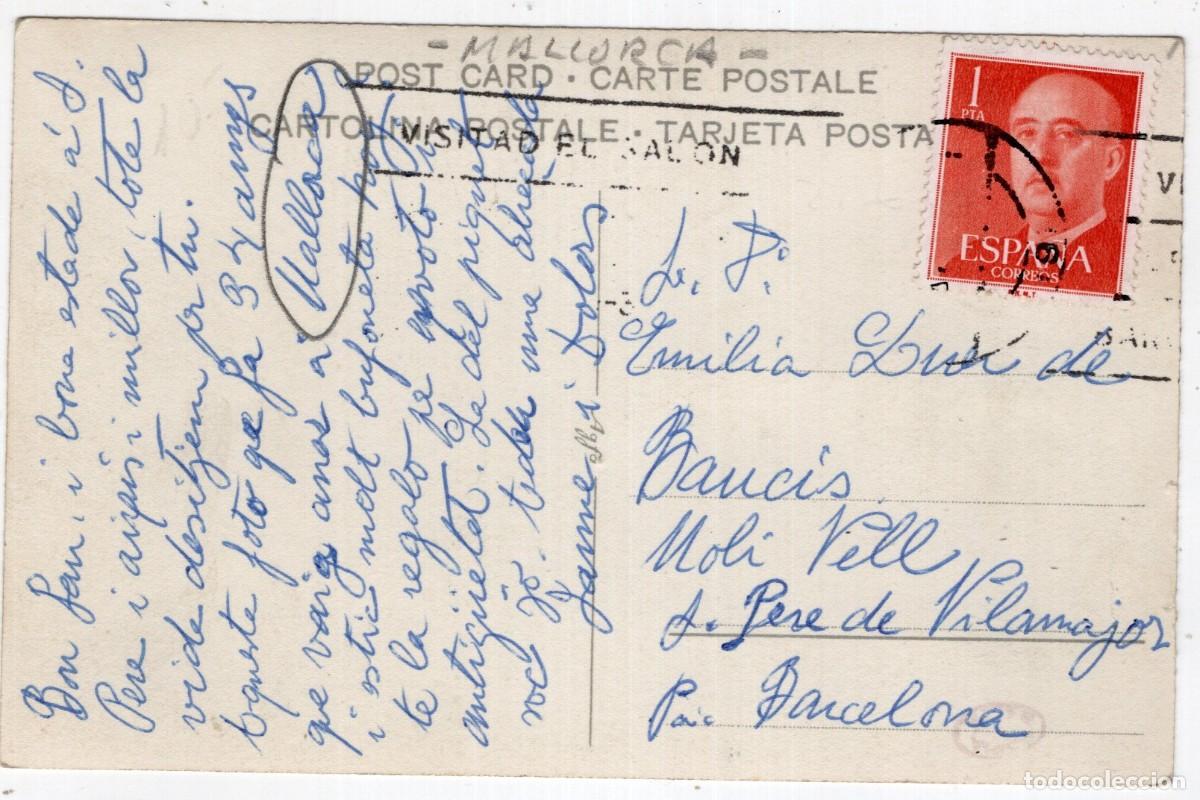 - MALLORCA -
POST CARD · CARTE POSTALE
CARTOLINA POSTALE · TARJETA POSTA
VISITAD EL SALON
1
PTA
ESPAÑA
CORREOS
Bon Sau i bona estade a S.
Pere i aixis i millor, tote la
vide desitjem per tu.
aqueste foto que fa 34 anys
que vaig anar a Mallorca
i estic molt bufoneta
te la regalo pe
antiguetat. La del piquet
soc jo. une abraçada
Jaume i Dolors
Emilia de
Baucis
Moli Vell
S. Pere de Vilamajor
Barcelona
todocoleccion